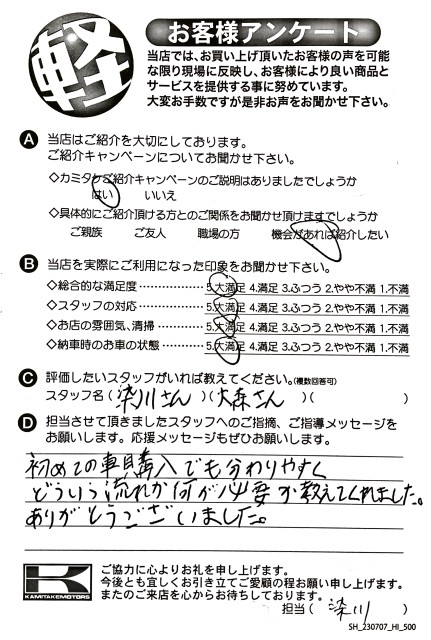 軽
お客様アンケート
当店では、お買い上げ頂いたお客様の声を可能
な限り現場に反映し、お客様により良い商品と
サービスを提供する事に努めています。
大変お手数ですが是非お声をお聞かせ下さい。
A 当店はご紹介を大切にしております。
ご紹介キャンペーンについてお聞かせ下さい。
◇カミタケご紹介キャンペーンのご説明はありましたでしょうか
はい いいえ
◇具体的にご紹介頂ける方とのご関係をお聞かせ頂けますでしょうか
ご親族 ご友人 職場の方 機会があれば紹介したい
B 当店を実際にご利用になった印象をお聞かせ下さい。
◇総合的な満足度 ………… 5.大満足 4.満足 3.ふつう 2.やや不満 1.不満
◇スタッフの対応 ………… 5.大満足 4.満足 3.ふつう 2.やや不満 1.不満
◇お店の雰囲気、清掃 ……… 5.大満足 4.満足 3.ふつう 2.やや不満 1.不満
◇納車時のお車の状態 ……… 5.大満足 4.満足 3.ふつう 2.やや不満 1.不満
C 評価したいスタッフがいれば教えてください。(複数回答可)
スタッフ名 ( 染川さん )( 大森さん )( )
D 担当させて頂きましたスタッフへのご指摘、ご指導メッセージを
お願いします。応援メッセージもぜひお願いします。
初めての車購入でも分わりやすく
どういう流れか何が必要か教えてくれました。
ありがとうございました。
K
KAMITAKEMOTORS
ご協力に心よりお礼を申し上げます。
今後とも宜しくお引き立てご愛顧の程お願い申し上げます。
またのご来店を心からお待ちしております。
担当 ( 染川 )
SH_230707_HI_500